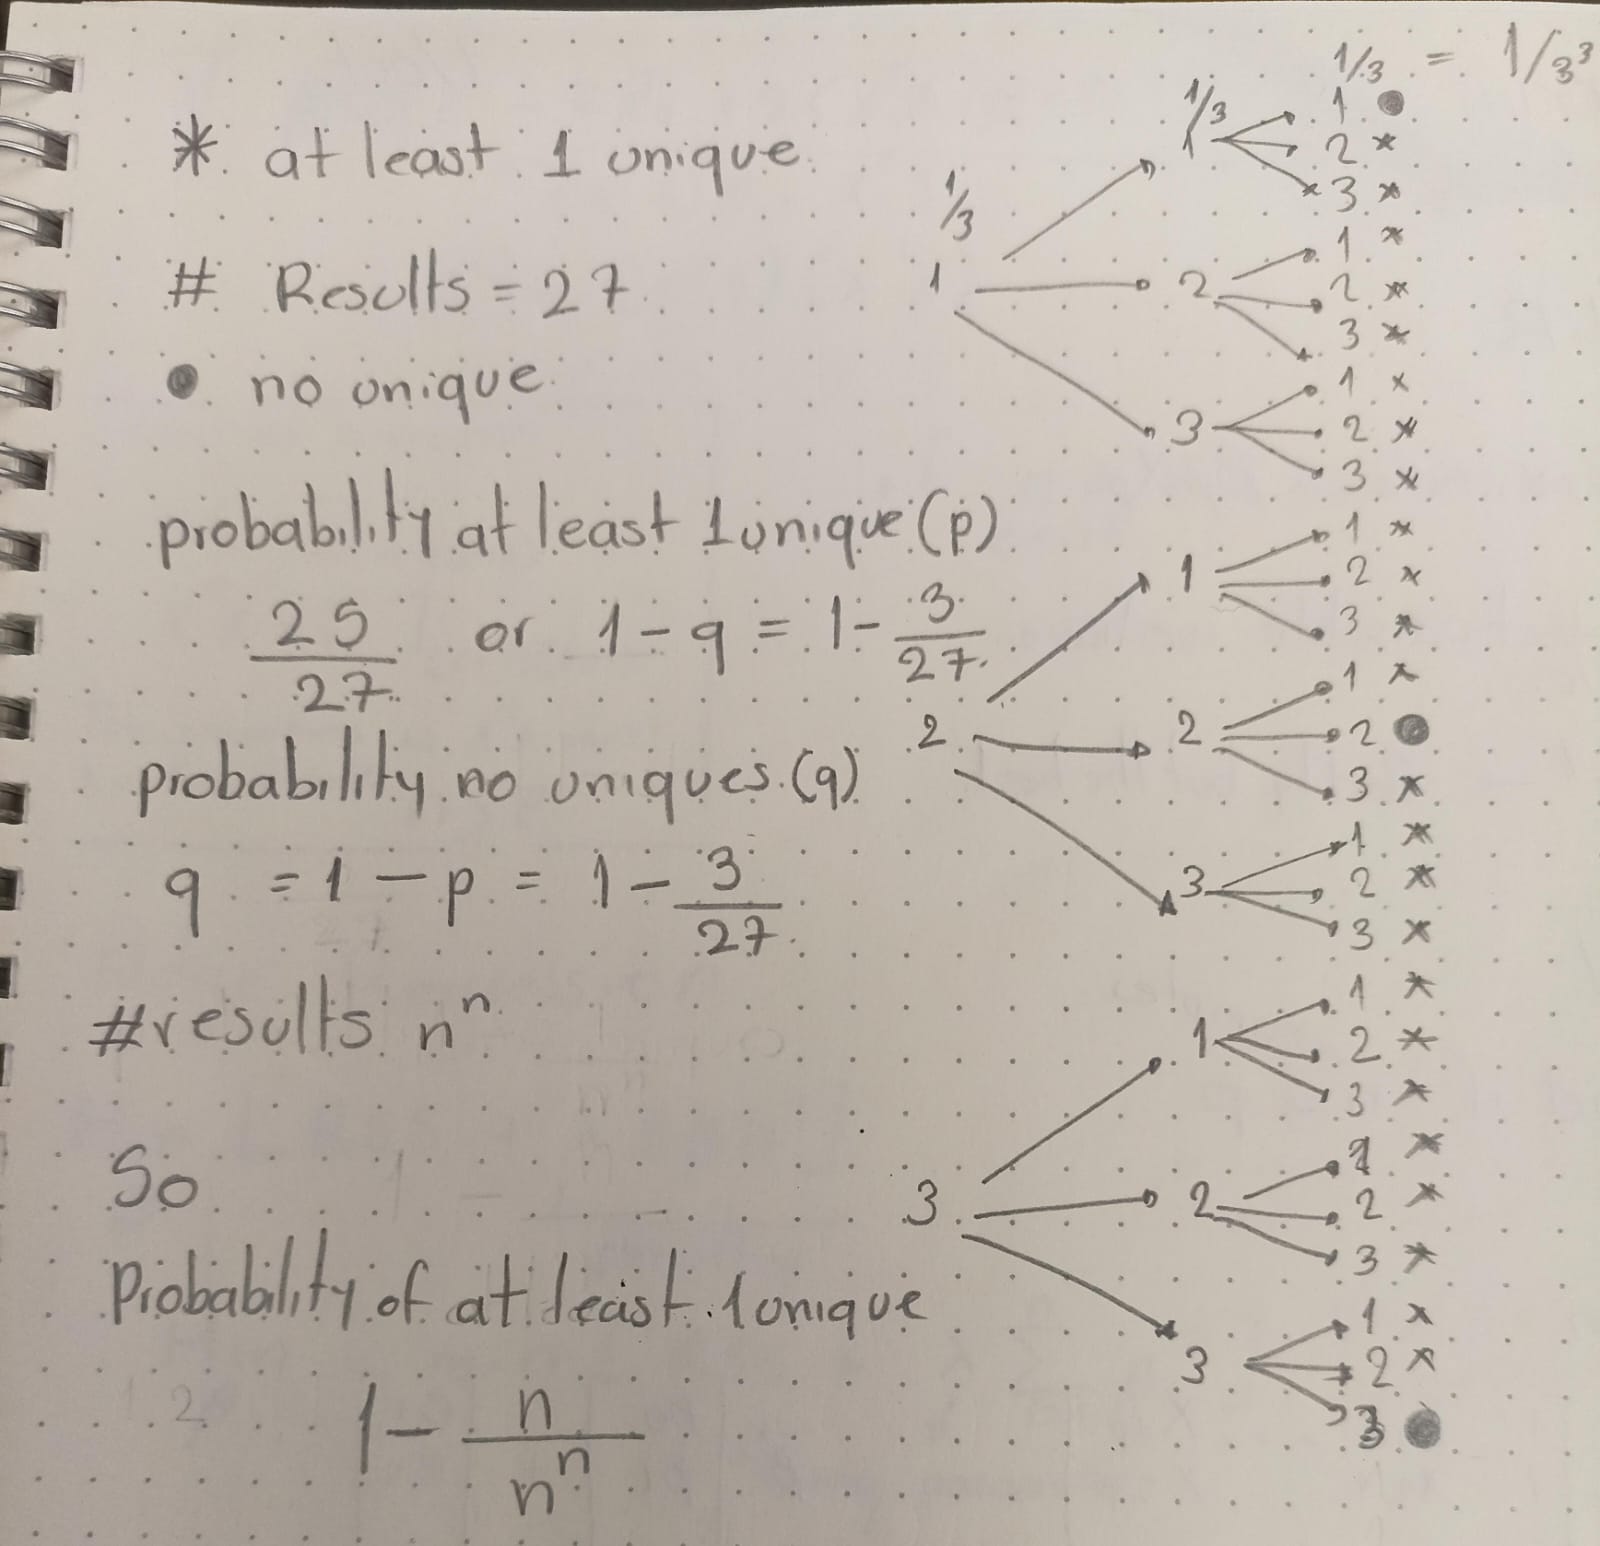 * at least 1 unique
# Results = 27
● no unique
probability at least 1 unique (p)
25/27 or 1 - q = 1 - 3/27
probability no uniques (q)
q = 1 - p = 1 - 3/27
#results n^n
So
Probability of at least 1 unique
1 - n/n^n
1/3 1/3 1/3 = 1/3³
1
1
1 ●
2 *
3 *
2
1 *
2 *
3 *
3
1 *
2 *
3 *
2
1
1 *
2 *
3 *
2
1 *
2 ●
3 *
3
1 *
2 *
3 *
3
1
1 *
2 *
3 *
2
1 *
2 *
3 *
3
1 *
2 *
3 ●